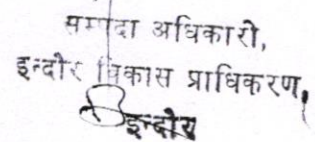 सम्पदा अधिकारी,
इन्दौर विकास प्राधिकरण,
इन्दौर